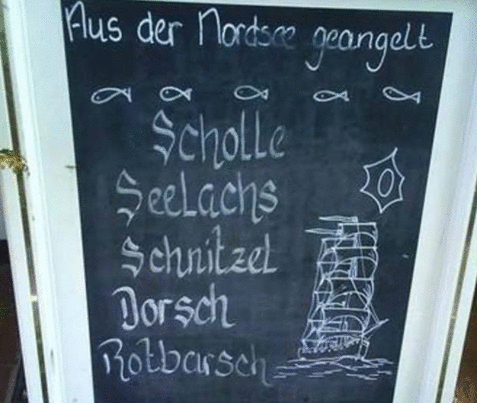 Aus der Nordsee geangelt
Scholle
Seelachs
Schnitzel
Dorsch
Rotbarsch